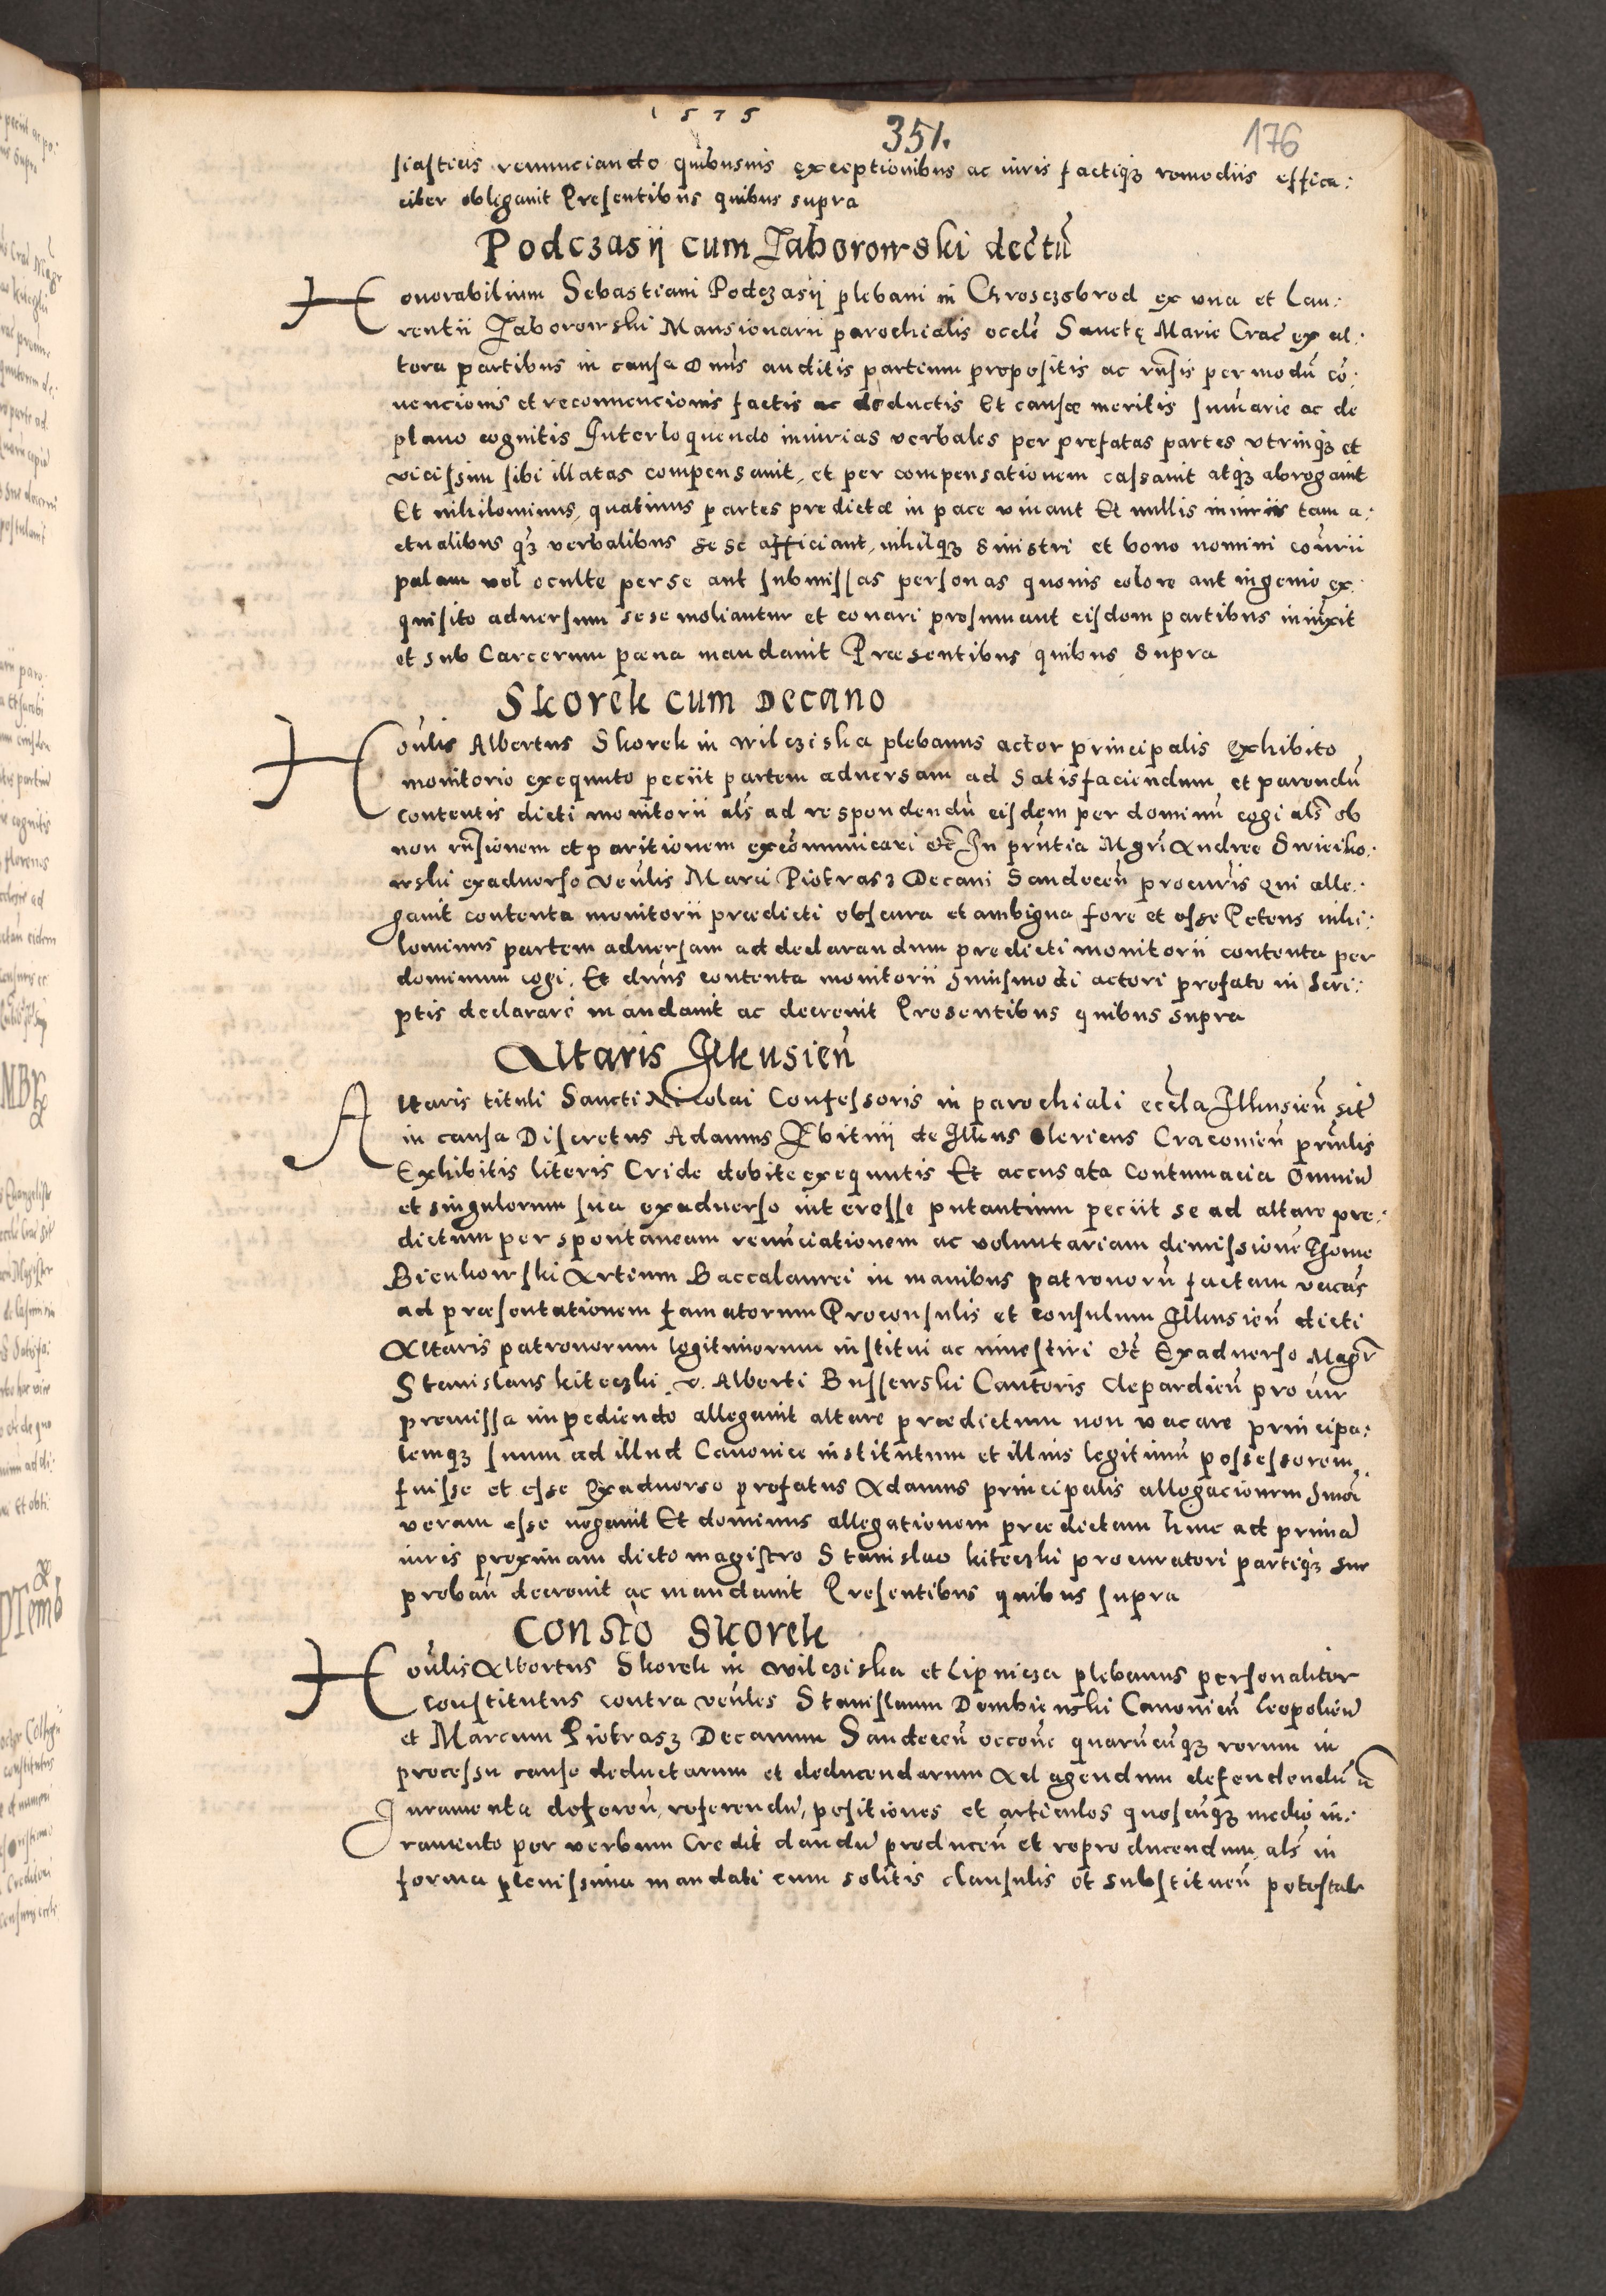 1575
351. 176
siasticis renunciando quibusuis exceptionibus ac iuris factiq3 remediis effica:
citer obligauit Presentibus quibus supra
Podczasij cum Jaborowski dectū
Honorabilium Sebastiani Podczasij plebani in Chrosczobrod ex vna et Lau:
rentii Jaborowski Mansionarii parochialis eccl̄e Sanctę Marie Crac̄ ex al:
tera partibus in causa Dn̄us auditis partium propositis ac rn̄sis per modū cō:
uencionis et reconuencionis factis ac deductis Et causæ meritis sum̄arie ac de
plano cognitis Interloquendo iniurias verbales per prefatas partes vtrinq3 et
vicissim sibi illatas compensauit, et per compensationem cassauit atq3 abrogauit
Et nihilominus, quatinus partes predictæ in pace viuant Et nullis iniuriis tam a:
ctualibus q3 verbalibus sese afficiant, nihilq3 sinistri et bono nomini cōtrarii
palam vel oculte per se aut submissas personas quouis colore aut ingenio ex:
quisito aduersum sese moliantur et conari presumant eisdem partibus iniūxit
et sub Carcerum pæna mandauit Præsentibus quibus supra
Skorek cum Decano
Hon̄lis Albertus Skorek in Wilcziska plebanus actor principalis exhibito
monitorio exequuto peciit partem aduersam ad satisfaciendum et parendū
contentis dicti monitorii al̄s ad respondendū eisdem per dominū cogi al̄s ob
non rn̄sionem et paritionem excōmunicari etc̄ In prn̄tia Mgrī Andree Swieiko:
wski exaduerso Ven̄lis Marci Piotrasz Decani Sandecen̄ procur̄is qui alle:
gauit contenta monitorii prædicti obscura et ambigua fore et esse Petens nihi:
lominus partem aduersam ad declarandum predicti monitorii contenta per
dominum cogi. Et dn̄us contenta monitorii huiusmodi actori prefato in scri:
ptis declarari mandauit ac decreuit Presentibus quibus supra
Altaris Ilkusien̄
Altaris tituli Sancti Nicolai Confessoris in parochiali eccl̄a Ilkusien̄ sit̄
in causa Discretus Adamus Zbitnij de Ilkus Clericus Cracouien̄ prin̄lis
Exhibitis literis Cride debite exequutis Et accusata contumacia Omniū
et singulorum sua exaduerso interesse putantium peciit se ad altare pre:
dictum per spontaneam renūciationem ac voluntariam demissionē Thome
Bienkowski Artium Baccalaurei in manibus patronorū factam vacās
ad præsentationem famatorum Proconsulis et Consulum Ilkusien̄ dicti
Altaris patronorum legitimorum institui ac inuestiri etc̄ Exaduerso Magr̄
Stanislaus kiteczki v. Alberti Bussewski Cantoris Cepardien̄ procur̄
premissa impediendo allegauit altare prædictum non vacare principa:
lemq3 suum ad illud Canonice institutum et illius legitimū possessorem
fuisse et esse Exaduerso prefatus Adamus principalis allegacionem hmōi
veram esse negauit Et dominus allegationem prædictam hinc ad primā
iuris proximam dicto magistro Stanislao kiteczki procuratori partiq3 sue
proban̄ decreuit ac mandauit Presentibus quibus supra
Constō Skorek
Hon̄lis Albertus Skorek in Wilcziska et Lipnicza plebanus personaliter
constitutus contra ven̄les Stanislaum Dembienski Canonicū Leopolien̄
et Marcum Piotrasz Decanum Sandecen̄ occōne quarūcūq3 rerum in
processu cause deductarum et deducendarum Ad agendum defendendū
Iuramenta deferen̄, referendū, positiones et articulos quoscūq3 medio iu:
ramento per verbum Credit dandū producen̄ et reproducendum al̄s in
forma plenissima mandati cum solitis clausulis et substituen̄ potestate